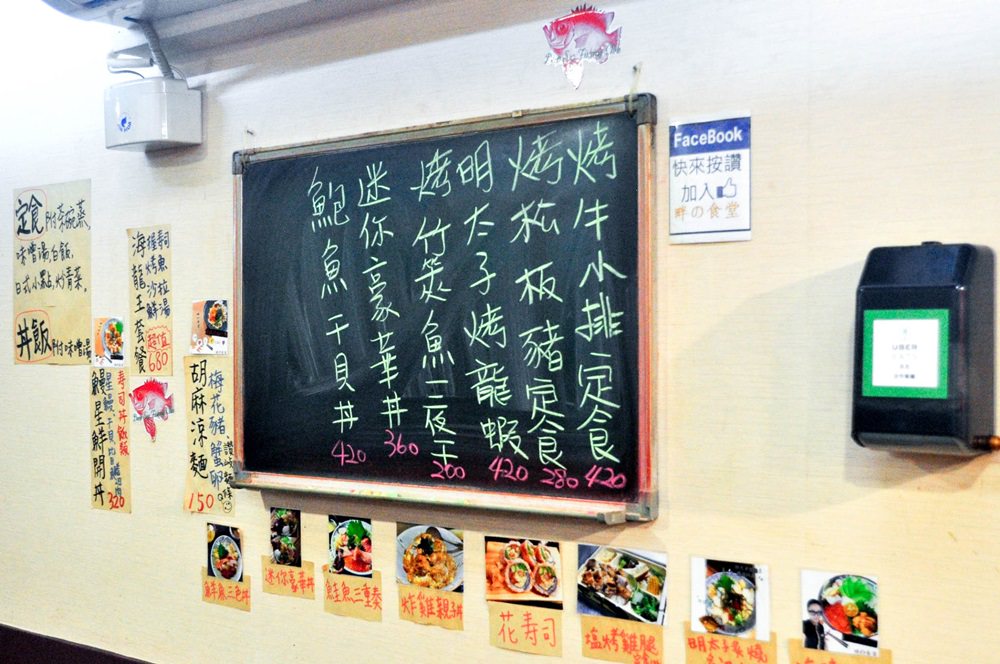 烤牛小排定食 420
烤松板豬定食 280
明太子烤龍蝦 420
烤竹筴魚一夜干 200
迷你豪華丼 360
鮑魚干貝丼 420
FaceBook
快來按讚
加入
畔の食堂
定食附茶碗蒸,
味噌湯,白飯,
日式小點,炒青菜。
丼飯附味噌湯
海龍王套餐
握壽司
烤魚
沙拉
鮮湯
超值
680
壽司丼飯類
鰻星鮮開丼
320
胡麻涼麵
梅花豬 蟹卵
150
鮭魚三色丼
迷你豪華丼
鮭魚三重奏
炸雞親子丼
花壽司
塩烤雞腿
明太子炙燒
UBER